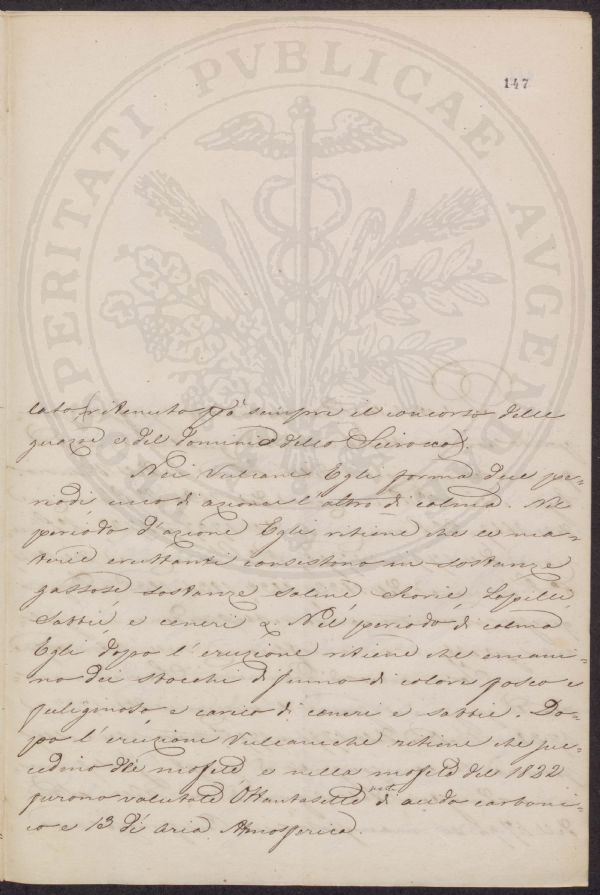 147
PROSPERITATI PVBLICAE AVGENDAE
lato (ritenuto però sempre il concorso delle
guazze e del dominio dello Scirocco).
Nei Vulcani Egli forma due pe=
riodi uno di azione l'altro di calma. Nel
periodo d'azione Egli ritiene che le ma=
terie eruttanti consistono in sostanze
gassose sostanze saline Scorie, Lapilli,
Sabbie e ceneri & Nel periodo di calma
Egli dopo l'eruzione ritiene che emani=
no dei stocchi di fumo di colore fosco e
fuliginoso e carico di ceneri e sabbie. Do=
po l'eruzioni Vulcaniche ritiene che suc=
cedino le mofete, e nella mofeta del 1822
furono valutate Ottantasette parti di acido carboni=
co e 13 di aria Atmosferica.